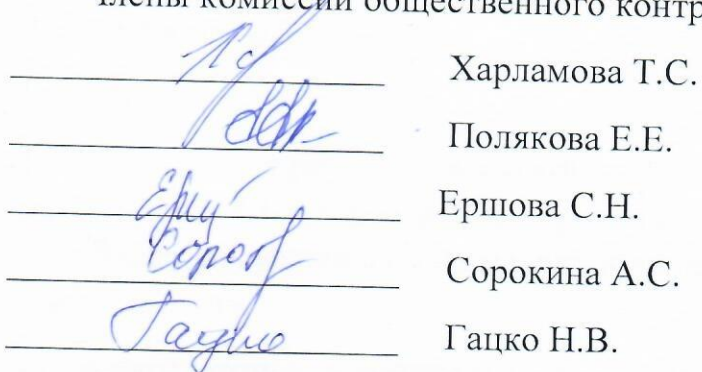 Члены комиссии общественного контр
Харламова Т.С.
Полякова Е.Е.
Ершова С.Н.
Сорокина А.С.
Гацко Н.В.